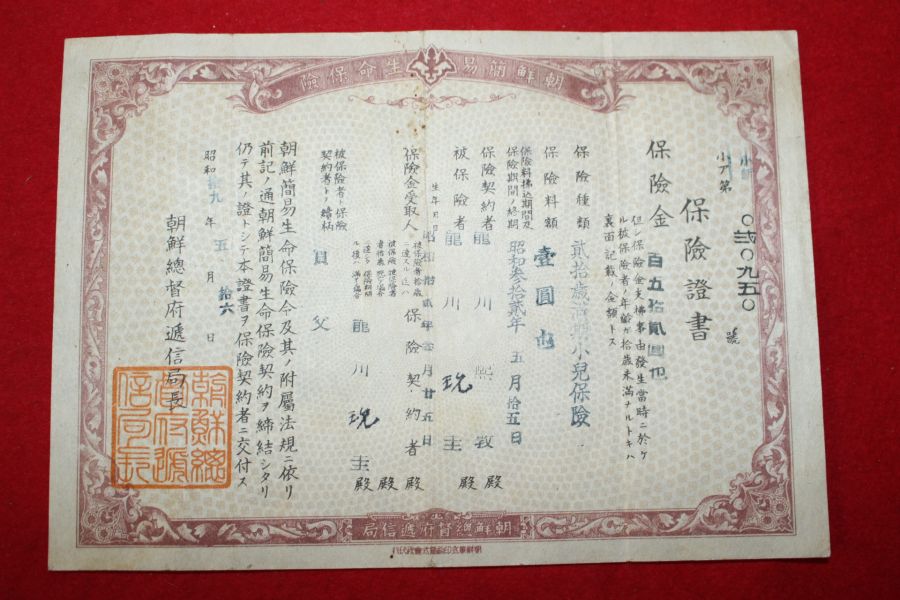 朝鮮簡易生命保險
小兒
小ア第
〇貳〇九五〇
號
保險證書
保險金 百五拾貳圓也
但シ保險金支拂事由發生當時ニ於ケ
ル被保險者ノ年齡ガ拾歲未滿ナルトキハ
裏面記載ノ金額トス
保險種類 貳拾歲滿期小兒保險
保險料額 壹圓也
保險料拂込期間及
保險期間ノ終期
昭和參拾貳年 五月拾五日
保險契約者 龍川 熙敦 殿
被保險者 龍川 珖圭 殿
生年月日 昭和拾貳年 月廿五日
保險金受取人
保險契約者 殿
龍川 珖圭 殿
殿
被保險者ト保險
契約者トノ續柄
實父
朝鮮簡易生命保險令及其ノ附屬法規ニ依リ
前記ノ通朝鮮簡易生命保險契約ヲ締結シタリ
仍テ其ノ證トシテ本證書ヲ保險契約者ニ交付ス
昭和拾九年五月拾六日
朝鮮總督府遞信局長
朝鮮總督府遞信局長
朝鮮總督府遞信局